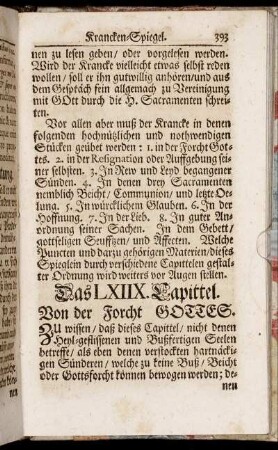 Krancken-Spiegel. 393
nen zu lesen geben / oder vorgelesen werden.
Wird der Krancke vielleicht etwas selbst reden
wollen / soll er ihn gutwillig anhören / und aus
dem Gespräch fein allgemach zu Vereinigung
mit GOtt durch die H. Sacramenten schrei-
ten.
Vor allen aber muß der Krancke in denen
folgenden hochnützlichen und nothwendigen
Stücken geübet werden: 1. in der Forcht Got-
tes. 2. in der Resignation oder Auffgebung sei-
ner selbsten. 3. In Rew und Leyd begangener
Sünden. 4. In denen drey Sacramenten
nemblich Beicht / Communion / und letzte Oe-
lung. 5. In würcklichem Glauben. 6. In der
Hoffnung. 7. In der Lieb. 8. In guter An-
ordnung seiner Sachen. In dem Gebett /
gottseligen Seufftzen / und Affecten. Welche
Puncten und darzu gehörigen Materien / dieses
Spieglein durch verschiedene Capittelen gestal-
ter Ordnung weiters vor Augen stellen.
Das LXIIX. Capittel.
Von der Forcht GOTTES.
ZU wissen / daß dieses Capittel / nicht denen
Heyl-geflissenen und Bußfertigen Seelen
betreffe / als eben denen verstockten hartnäcki-
gen Sünderen / welche zu keine Buß / Beicht
oder Gottsforcht können bewogen werden; de-
nen